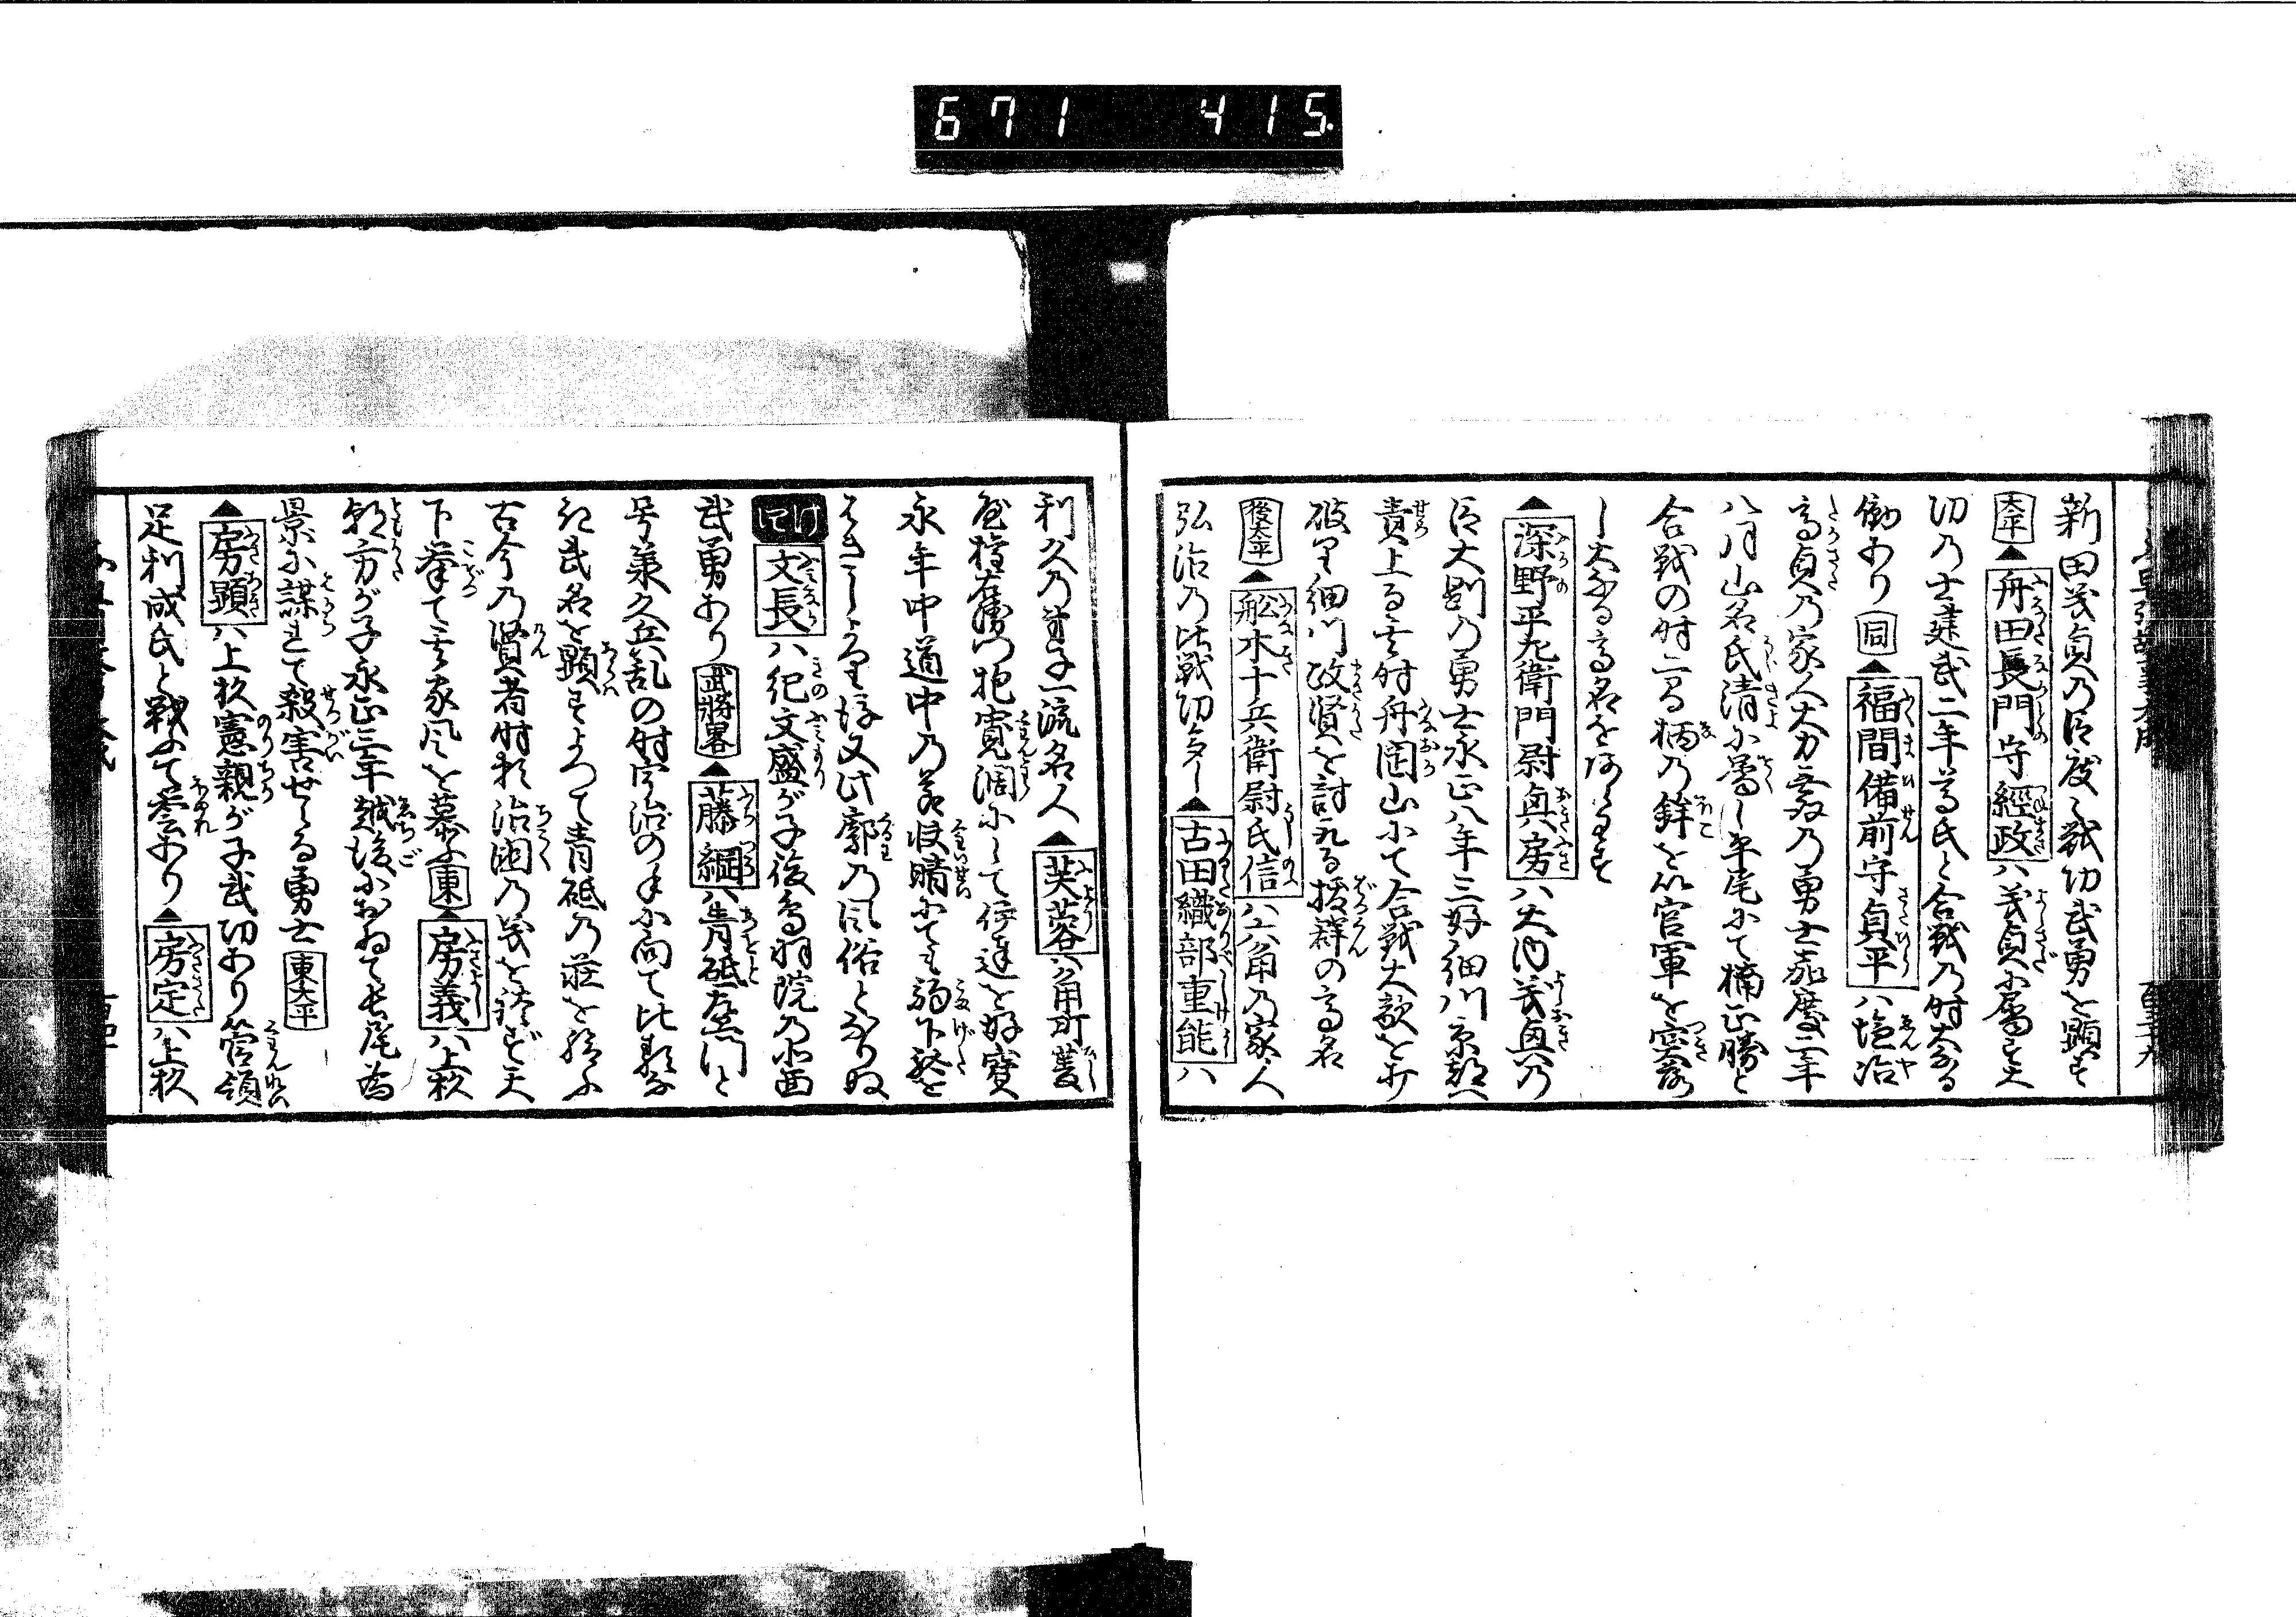 671 415
新田義貞乃臣度々戦功武勇を顕す
太平▲舟田長門守經政ハ義貞に属す大
功乃士建武二年尊氏と合戦乃時大なる
働あり 同▲福間備前守貞平ハ塩冶
高貞乃家人大力無双乃勇士嘉慶二年
八月山名氏清に属し平尾にて楠正勝と
合戦の時二間柄乃鉾を以官軍を突落
し大なる高名を
▲深野平左衛門尉興房ハ大内義興乃
臣大剛乃勇士永正八年三好細川京都へ
責上る其時舟岡山にて合戦大敵を打
破り細川政賢を討取る抜群の高名
後太平▲舩木十兵衛尉氏信ハ六角乃家人
弘治乃比戦功多し▲古田織部重能ハ
利久乃弟子一流名人▲芙蓉ハ角町菱
屋権左衛門抱寛濶にして伊達を好寶
永年中道中乃若衆晴にても駒下駄を
はきしより後又此廓乃風俗となりぬ
け
文長ハ紀文盛が子後鳥羽院乃北面
武勇あり 武將畧▲藤綱ハ青砥左衛門と
号承久兵乱の時宇治の手に向て比類な
き武名を顕すよつて青砥乃荘を給ふ
古今乃賢者時頼治国乃義を談ず天
下挙て其家風を慕ふ 東▲房義ハ上杦
朝方が子永正三年越後におゐて長尾為
景に謀られて殺害せらる勇士 東太平
▲房顕ハ上杦憲親が子武功あり管領
足利成氏と戦て誉あり▲房定ハ上杦